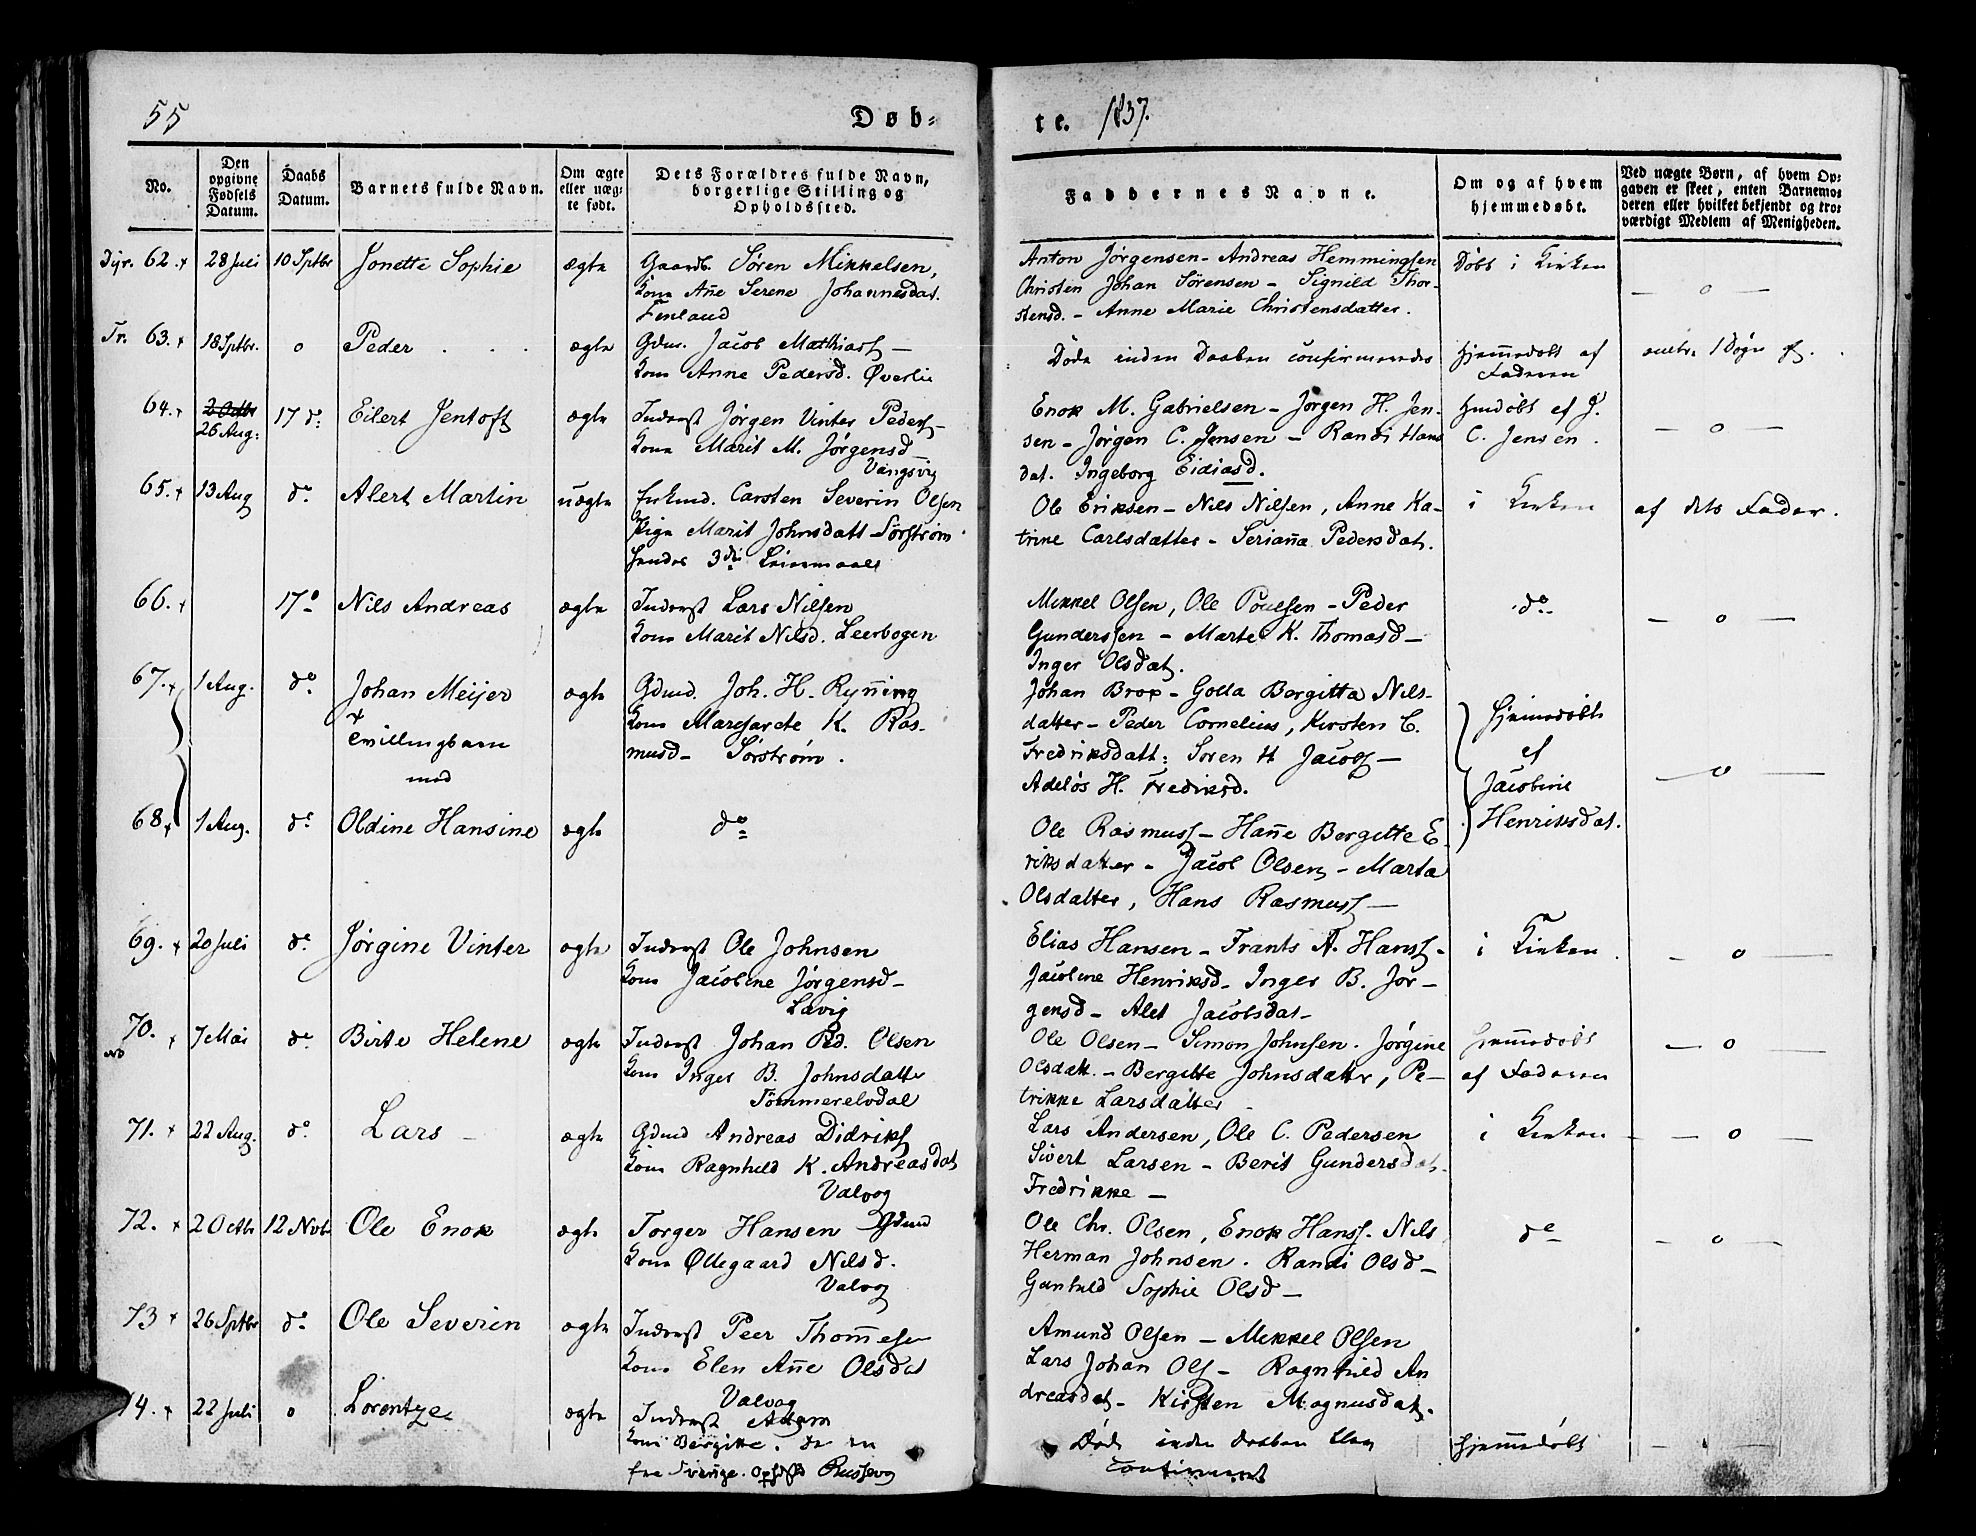 55
Døb=
te. 1837.
No.
Den opgivne Fødsels Datum.
Daabs Datum.
Barnets fulde Navn.
Om ægte eller uæg= te født.
Dets Forældres fulde Navn, borgerlige Stilling og Opholdssted.
Faddernes Navne.
Om og af hvem hjemmedøbt.
Ved uægte Børn, af hvem Op= gaven er skeet, enten Barnemo= deren eller hvilket bekjendt og tro= værdigt Medlem af Menigheden.
62. 28 Juli 10 Sptbr Jonette Sophie ægte
Gaardb. Søren Mikkelsen,
Kone Añe Serene Johannesdat.
Fenland
Anton Jørgensen - Andreas Hemmingsen
Christen Johan Sørensen - Signild Thor-
stensd. - Anne Marie Christensdatter.
Døbt i Kirken
— o —
Tr. 63. 18 Sptbr. o Peder ægte
Gdm. Jacob Mathias —
Kone Anne Pedersd. Øverlie
Døde inden Daaben confirmeredes
hjem̃edøbt af
Faderen
64. 2 Octbr
26 Aug: 17 do Eilert Jentoft ægte
Inderst Jørgen Vinter Peders —
Kone Marit M. Jørgensd —
Vangsvig
Enok M. Gabrielsen - Jørgen H. Jen-
sen - Jørgen C. Jensen - Randi Hans
dat. Ingeborg
C. Jensen.
— o —
65. 13 Aug do Alert Martin uægte
Carsten Severin Olsen
Pige Marit Johnsdatt Sørstrøm
hendes 3die Leiermaal
Ole Eriksen - Nils Nilsen, Anne Ka-
trine Carlsdatter - Seriaña Pedersdat.
i Kirken
af dets Fader.
66. 17o Nils Andreas ægte
Inderst Lars Nilsen
Kone Marit Nilsd. Leerbogen
Mikkel Olsen, Ole Poulsen - Peder
Gunderssen - Marte K. Thomasd —
Inger Olsdat.
do
— o —
67. 1 Aug. do Johan Meijer ægte
Tvillingbarn
med
Gdmd. Joh. H. Ryñing
Kone Margarete K. Ras-
musd - Sørstrøm.
Johan Brox - Golla Bergitta Nils-
datter - Peder Cornelius, Kirsten C.
Fredriksdatt: Søren H Jacobs —
Adeløs H. Fredriksd.
Hjem̃edøbte
af
Jacobine
Henriksdat.
— o —
68. 1 Aug. do Oldine Hansine ægte
do
Ole Rasmuss - Hañe Bergitte E-
riksdatter - Jacob Olsen - Marta
Olsdatter, Hans Rasmuss —
69. 20 Juli do Jørgine Vinter ægte
Inderst Ole Johnsen
Kone Jacobine Jørgensd —
Lavig
Elias Hansen - Frants A. Hans -
Jacobine Henriksd - Inger B. Jør-
gensd - Alet Jacobsdat -
i Kirken
— o —
70. 7 Mai do Birte Helene ægte
Inderst Johan Pd. Olsen
Kone Inger B. Johnsdatter
Tømmerelvdal
Ole Olsen - Simon Johnsen. Jørgine
Olsdatt. - Bergitte Johnsdatter, Pe-
trikke Larsdatter
hjem̃edøbt
af Faderen
— o —
71. 22 Aug. do Lars ægte
Gdmd Andreas Didriks
Kone Ragnhild K. Andreasdat
Valvog
Lars Andersen, Ole C. Pedersen
Sivert Larsen - Berit Gundersdat.
Fredrikke —
i Kirken
— o —
72. 2 Octbr 12 Nvbr Ole Enok ægte
Torger Hansen Gdmd
Kone Øllegaard Nilsd.
Valvog
Ole Chr. Olsen, Enok Hans. Nils
Herman Johnsen. Randi Olsd —
Gunhild Sophie Olsd —
do
— o —
73 26 Sptbr do Ole Severin ægte
Inderst Peer Thom̃esen
Kone Elen Añe Olsdat
Valvog
Amund Olsen - Mikkel Olsen
Lars Johan Ols - Ragnhild An
dreasdat - Kirsten Magnusdat.
74. 22 Juli o Lorentze ægte
Inderst Adam
Kone Bergitte.
fra Sverige.
Døde inden Daaben
hjem̃edøbt